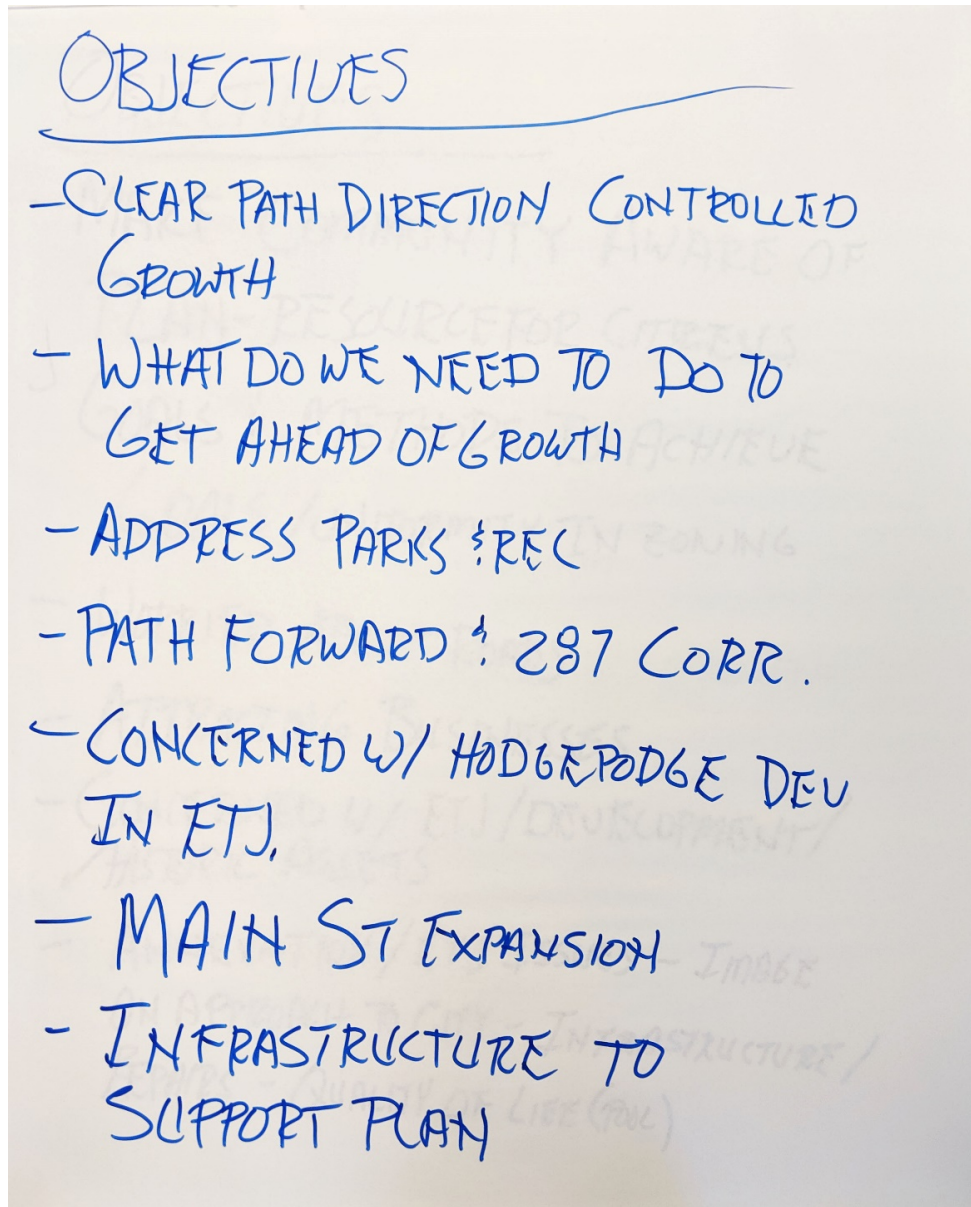 OBJECTIVES
- CLEAR PATH DIRECTION CONTROLLED
GROWTH
- WHAT DO WE NEED TO DO TO
GET AHEAD OF GROWTH
- ADDRESS PARKS & REC
- PATH FORWARD & 287 CORR.
- CONCERNED W/ HODGEPODGE DEV
IN ETJ.
- MAIN ST EXPANSION
- INFRASTRUCTURE TO
SUPPORT PLAN